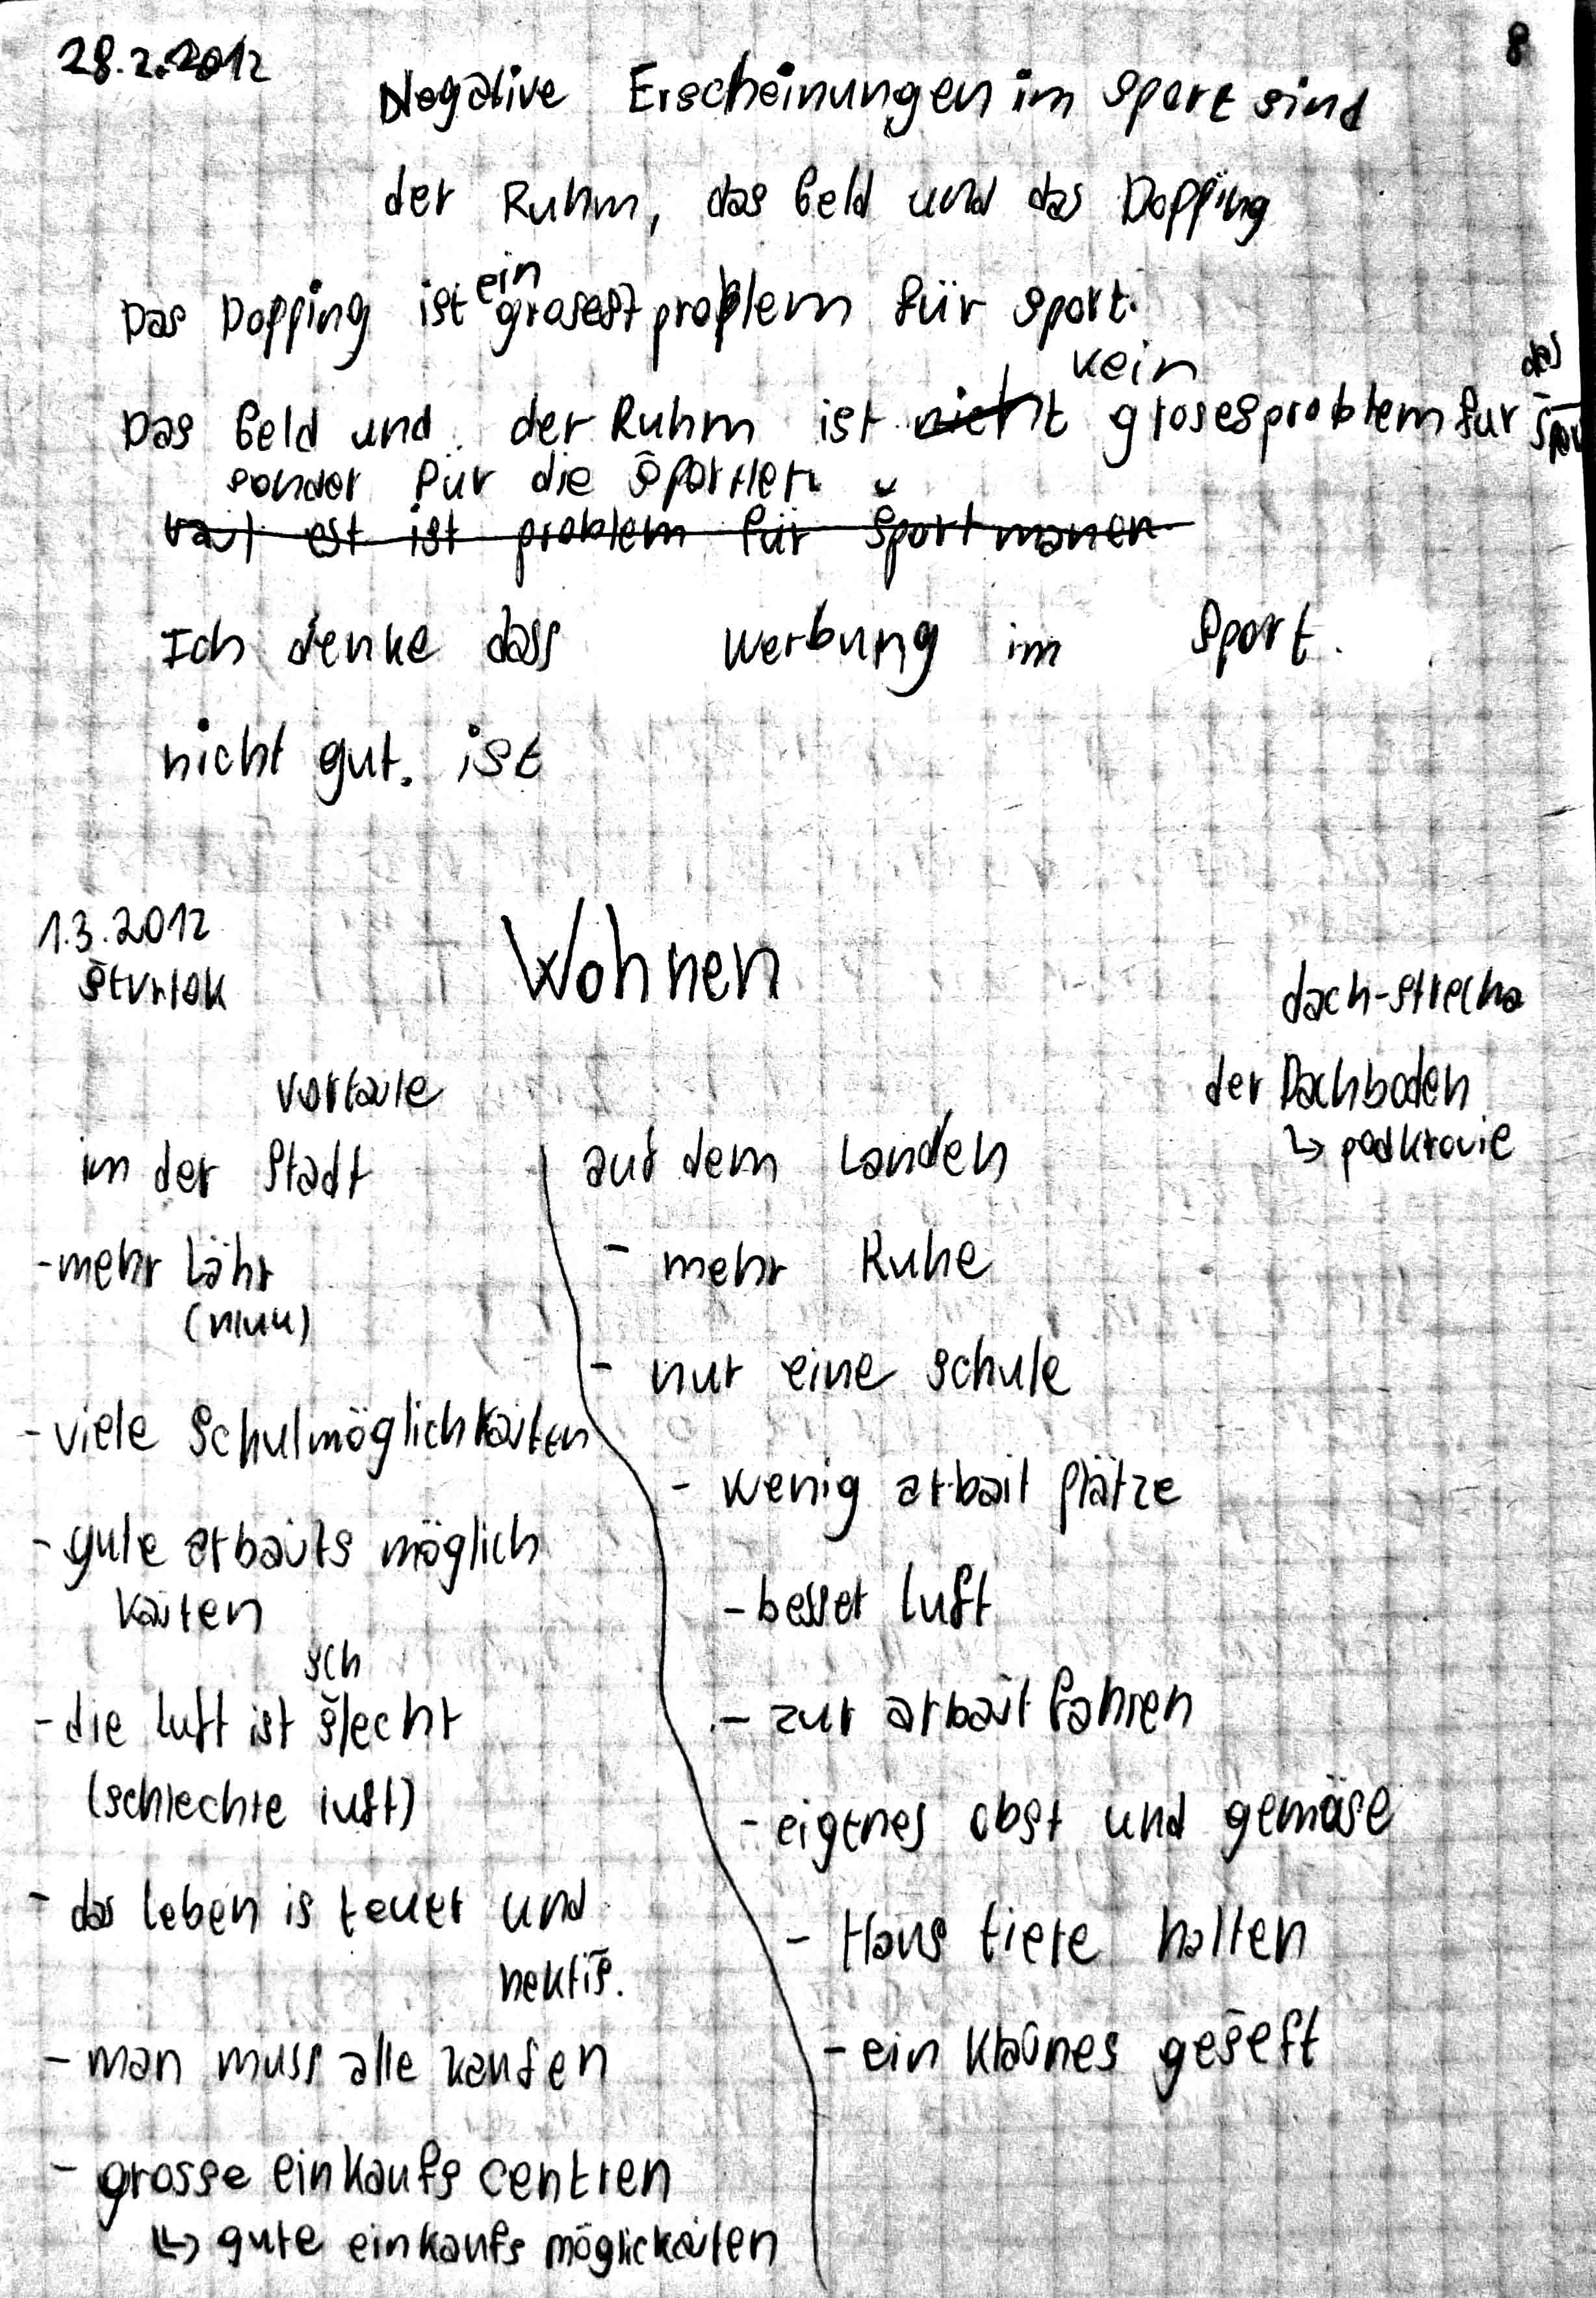 28.2.2012
8
Negative Erscheinungen im Sport sind
der Ruhm, das Geld und das Dopping
ein
Das Dopping ist grosest problem für sport.
kein
das
Das Geld und der Ruhm ist nicht grosesproblem fur Spor
sonder für die Sportlern
vail est ist problem für športmanen
Ich denke dass Werbung im Sport.
nicht gut. ist
1.3.2012
štvrtok
Wohnen
dach-strecha
der Dachboden
↳ podkrovie
vortaile
in der Stadt
auf dem Landen
-mehr Lähr
(hluk)
- mehr Ruhe
- nur eine schule
- viele Schulmöglichkaiten
- wenig arbait plätze
- gute arbaits möglich
kaiten
- besser luft
sch
- die luft ist šlecht
- zur arbait fahren
(schlechte luft)
- eigenes obst und gemäse
- das leben is teuer und
hektiš.
- Haus tiere halten
- man muss alle kaufen
- ein klaines gešeft
- grosse einkaufs centren
↳ gute einkaufs möglickaiten